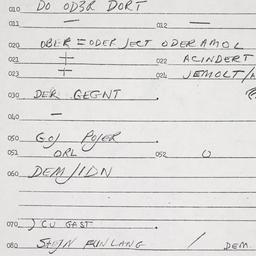 010 DO OD3R DORT
011 — 012 —
020 OBER = ODER JECT ODER AMOL
021 + 022 ACINDERT
023 + 024 JEMOLT/
030 DER GEGNT .
040 —
050 GOJ POJER .
051 ORL 052 U
060 DEM/IDN
070 ) CU GAST .
080 STEJN FUN LANG / DEM